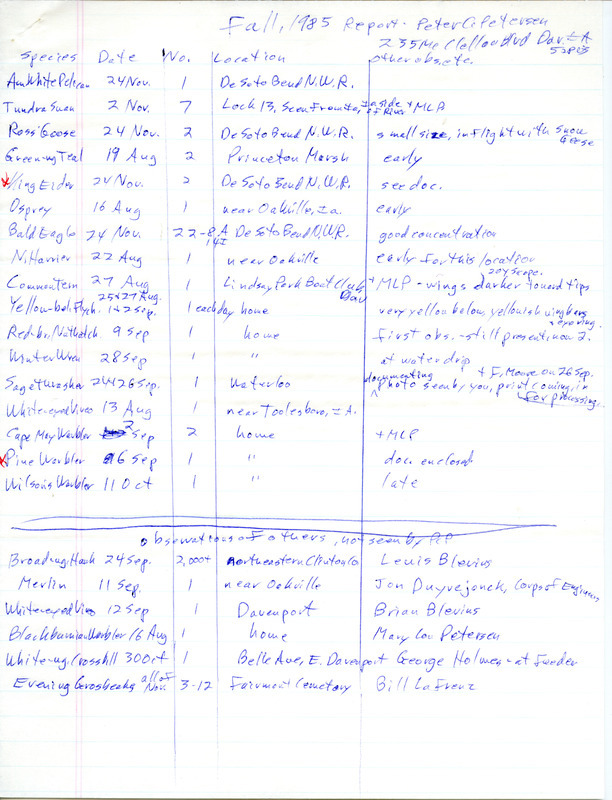 Fall, 1985 Report - Peter C. Petersen
235 McClellan Blvd Dav. IA
52803
Species Date No. Location other obs. etc.
Am White Pelican 24 Nov. 1 DeSoto Bend N.W.R.
Tundra Swan 2 Nov. 7 Lock 13, Seen From Ia. side of River + MLP
Ross' Goose 24 Nov. 2 DeSoto Bend N.W.R. small size, in flight with Snow Geese
Green-wg Teal 19 Aug 2 Princeton Marsh early
King Eider 24 Nov. 2 DeSoto Bend N.W.R. see doc.
Osprey 16 Aug 1 near Oakville, Ia. early
Bald Eagle 24 Nov. 22-8A 14I DeSoto Bend N.W.R. good concentration
N. Harrier 22 Aug 1 near Oakville early for this location
Common Tern 27 Aug 1 Lindsay Park Boat Club Dav + MLP - wings darker toward tips 20X scope.
Yellow-bel. Flyc. 25 & 27 Aug. 1 & 2 Sep. 1 each day home very yellow below, yellowish wingbars + eye ring.
Red-br. Nuthatch 9 Sep 1 home first obs. - still present, now 2.
Winter Wren 28 Sep 1 " at water drip
Sage Thrasher 24 & 26 Sep. 1 Waterloo + F. Moore on 26 Sep. documenting photo seen by you, print coming, in for processing.
White-eyed Vireo 13 Aug 1 near Toolesboro, IA.
Cape May Warbler 2 Sep 2 home + MLP
Pine Warbler 6 Sep 1 " doc. enclosed
Wilson's Warbler 11 Oct 1 " late
observations of others, not seen by PCP
Broad-wg. Hawk 24 Sep. 2,000+ northeastern Clinton Co Lewis Blevins
Merlin 11 Sep. 1 near Oakville Jon Duyvejonck, Corps of Engineers
White-eyed Vireo 12 Sep 1 Davenport Brian Blevins
Blackburnian Warbler 16 Aug 1 home Mary Lou Petersen
White-wg. Crossbill 30 Oct 1 Belle Ave, E. Davenport George Holmes - at feeder
Evening Grosbeaks all of Nov. 3-12 Fairmont Cemetery Bill LaFrenz